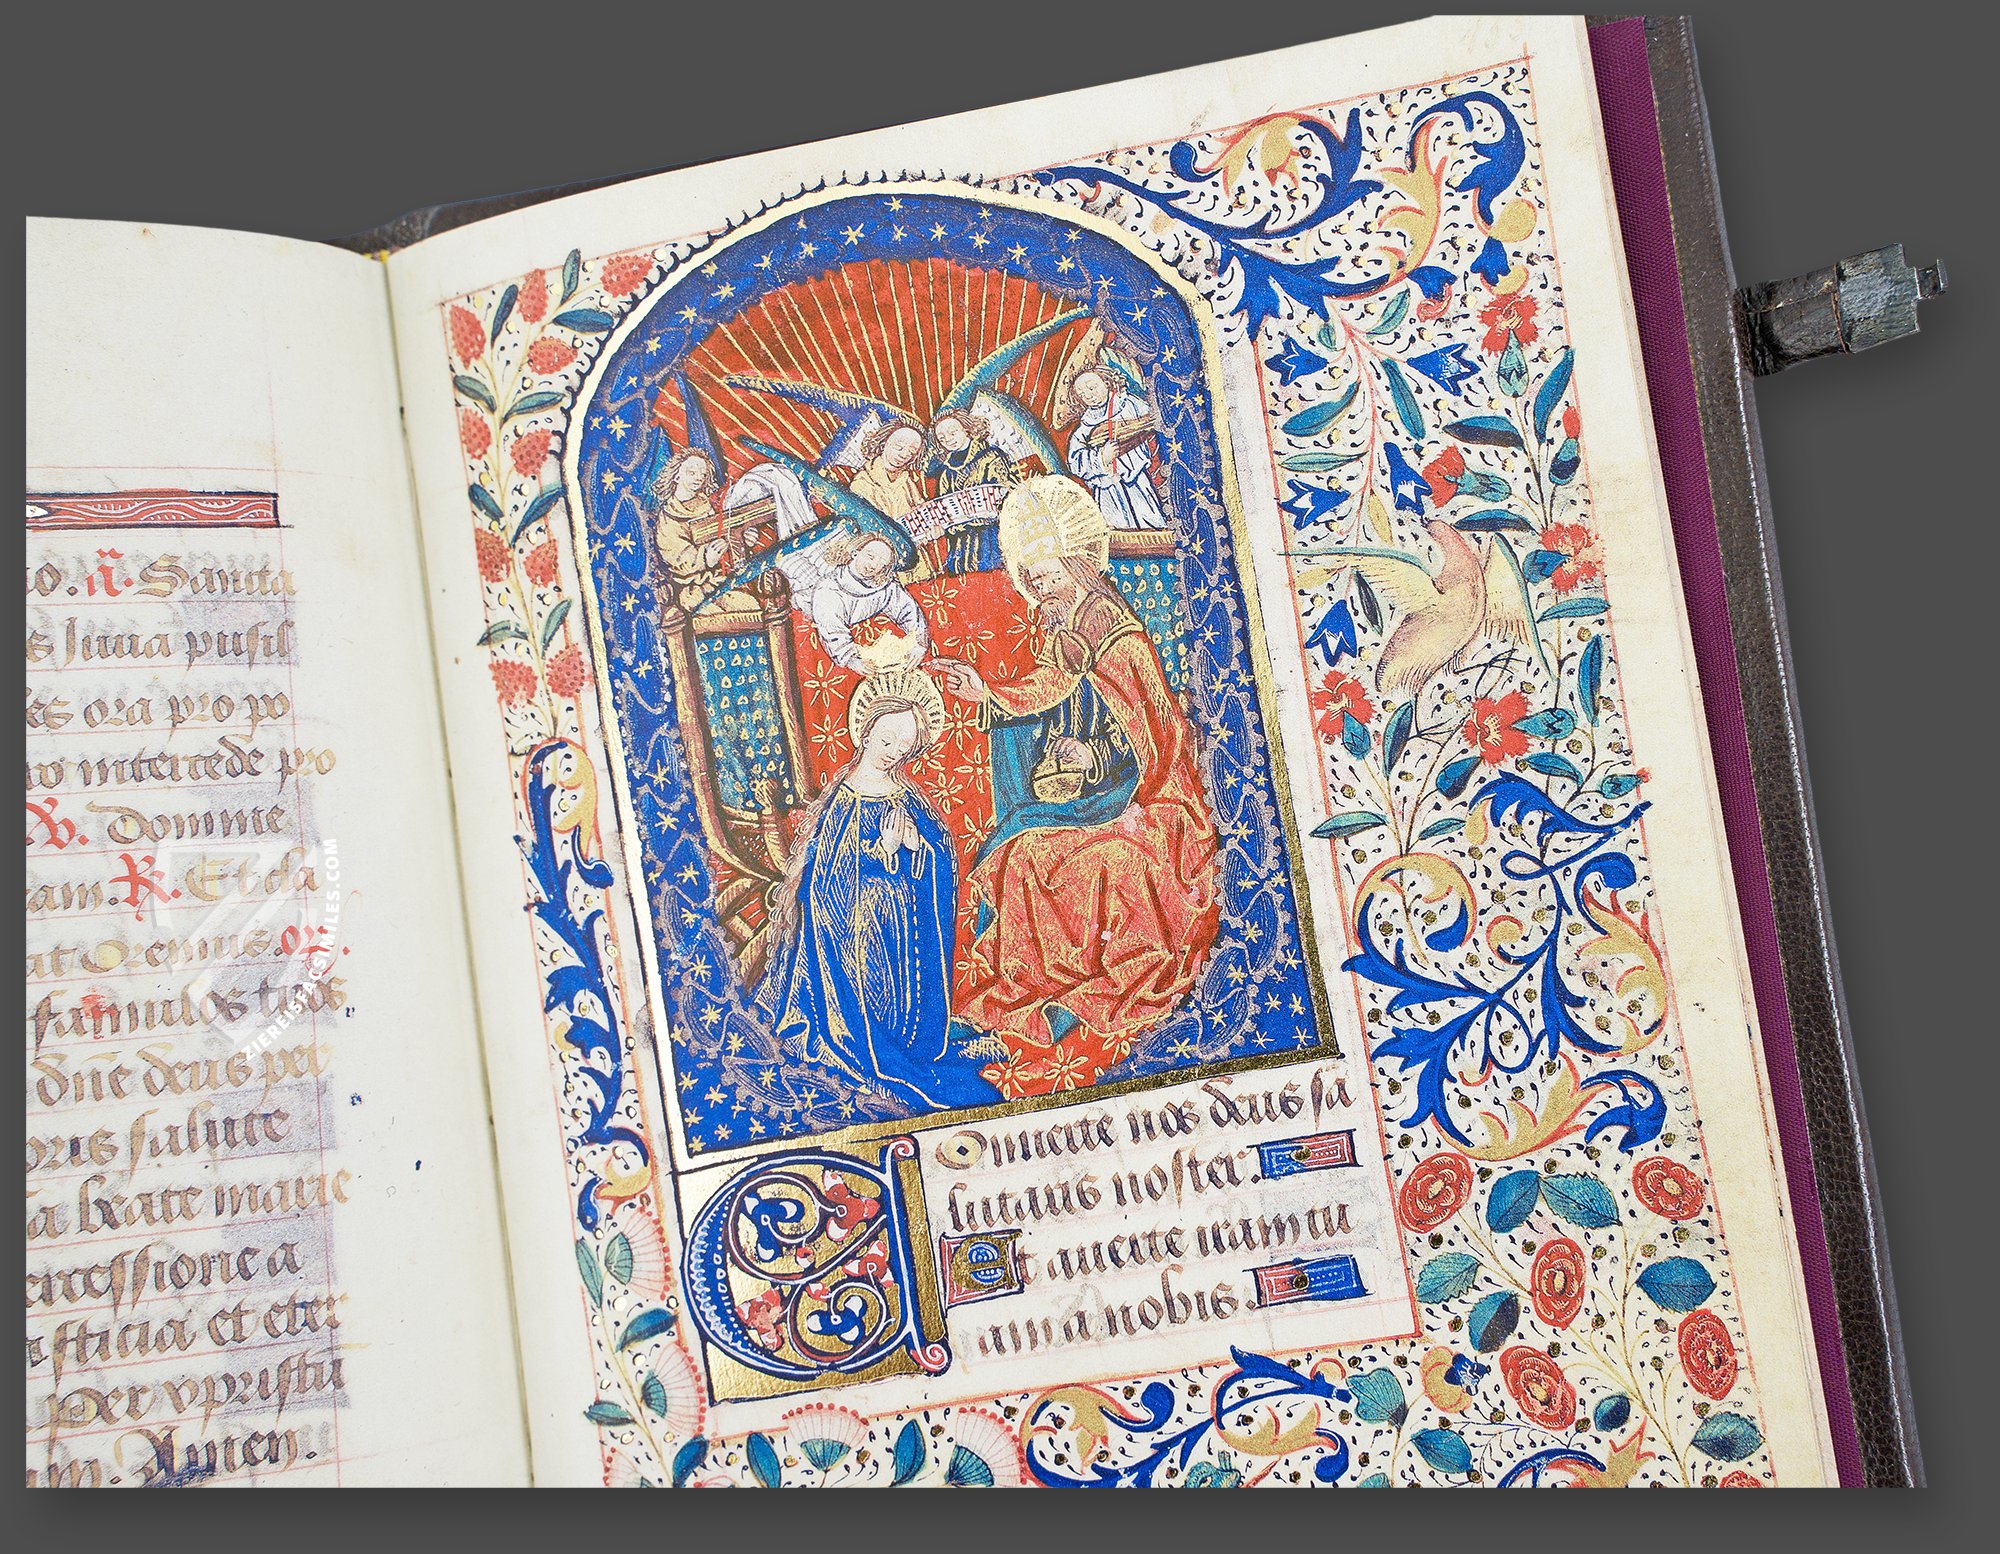 o. a. Sancta
s Iuua pusil
les ora pro po
ro intercede pro
V. Domine
am. R. Et cla
at Oremus. or.
famulos tuos
dn̄e deus per
oris salute
a beate marie
ercessione a
sticia et eter
Per xpristū
m. Amen.
ZIEREISFACSIMILES.COM
Conuerte nos deus sa
lutaris noster.
Et auerte iram tu
am a nobis.